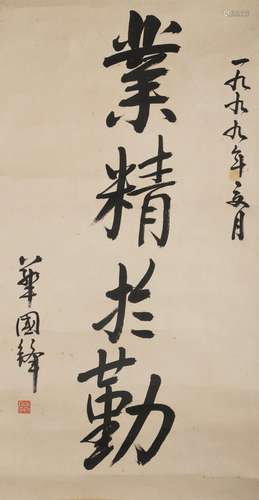 一九九九年六月
業精於勤
華國鋒